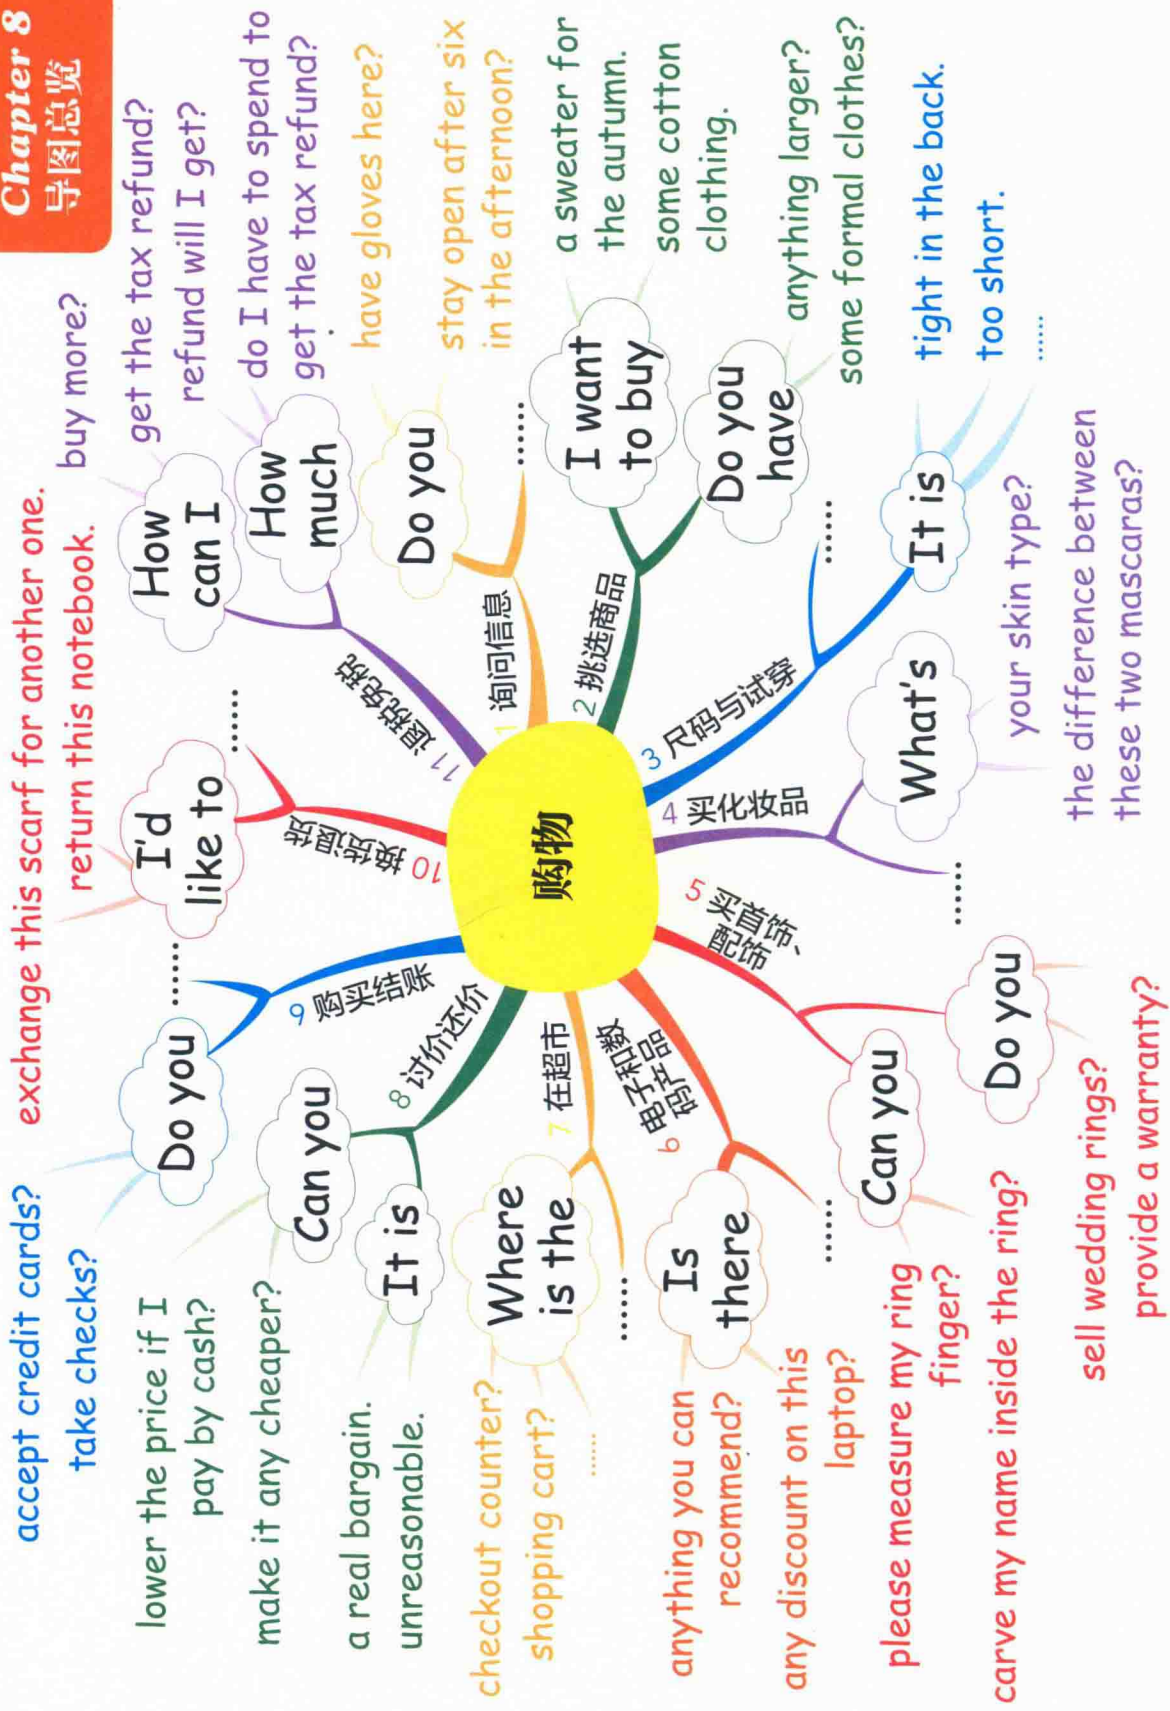 Chapter 8
导图总览
购物
1 询问信息
Do you
have gloves here?
stay open after six
in the afternoon?
......
2 挑选商品
I want
to buy
a sweater for
the autumn.
some cotton
clothing.
Do you
have
anything larger?
some formal clothes?
3 尺码与试穿
......
It is
tight in the back.
too short.
......
4 买化妆品
What's
your skin type?
the difference between
these two mascaras?
......
5 买首饰、
配饰
Do you
sell wedding rings?
provide a warranty?
Can you
please measure my ring
finger?
carve my name inside the ring?
6 电子和数
码产品
Is
there
anything you can
recommend?
any discount on this
laptop?
......
7 在超市
Where
is the
checkout counter?
shopping cart?
......
......
8 讨价还价
Can you
lower the price if I
pay by cash?
make it any cheaper?
It is
a real bargain.
unreasonable.
9 购买结账
Do you
accept credit cards?
take checks?
......
10 换货退货
I'd
like to
exchange this scarf for another one.
return this notebook.
......
11 退税免税
How
can I
buy more?
get the tax refund?
How
much
refund will I get?
do I have to spend to
get the tax refund?